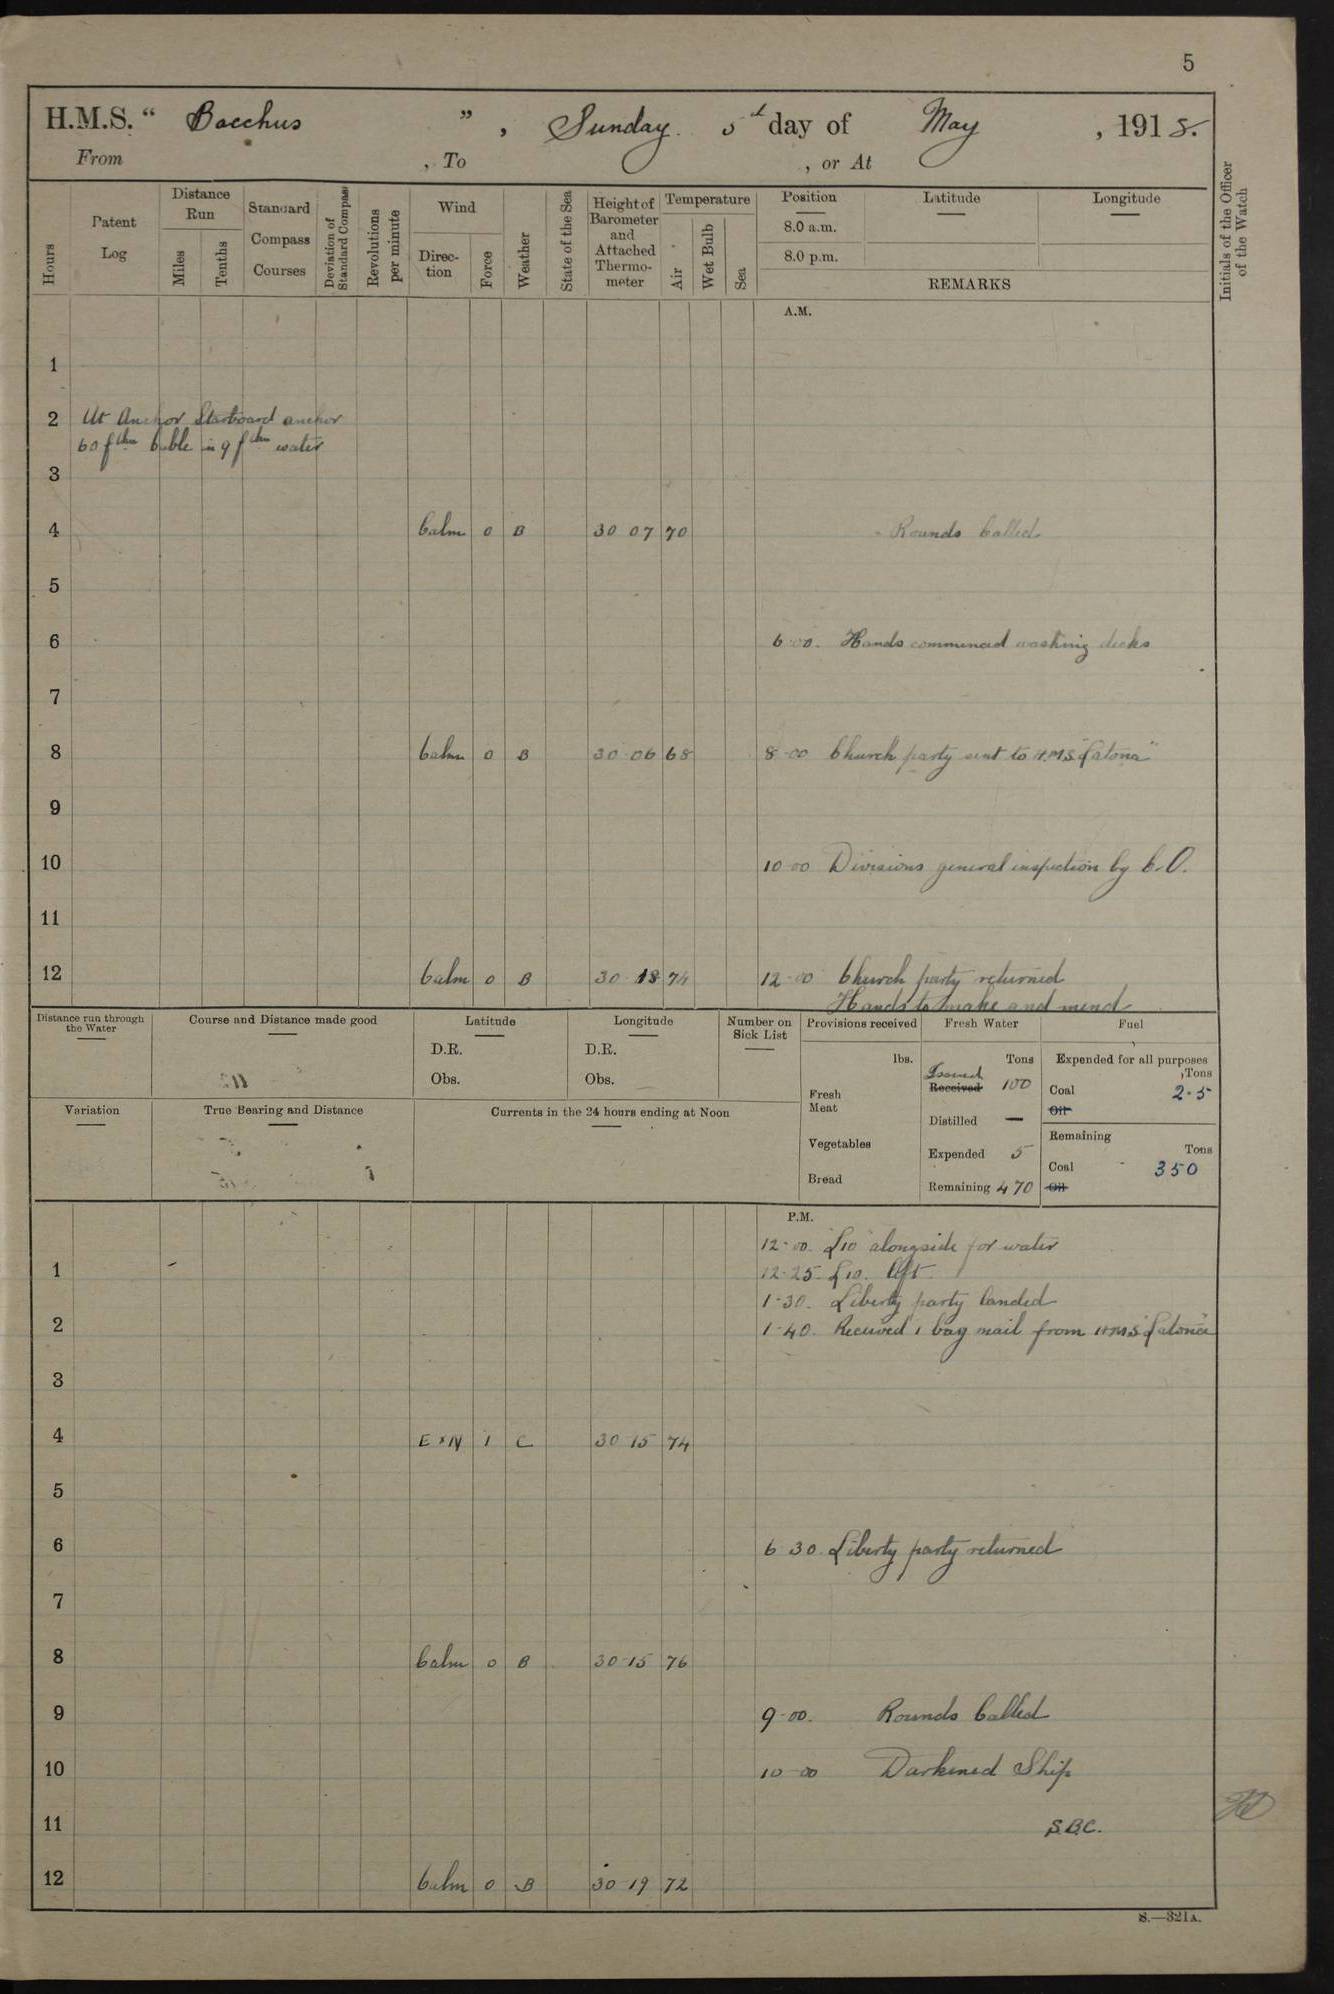 5
H.M.S. “ Bacchus ” , Sunday. 5th day of May , 1918.
From , To , or At
Hours
Patent Log
Distance Run
Miles
Tenths
Standard Compass Courses
Deviation of Standard Compass
Revolutions per minute
Wind
Direction
Force
Weather
State of the Sea
Height of Barometer and Attached Thermometer
Temperature
Air
Wet Bulb
Sea
Position
8.0 a.m.
8.0 p.m.
Latitude
Longitude
REMARKS
Initials of the Officer of the Watch
A.M.
1
2 At Anchor Starboard anchor
60 fthm Cable in 9 fthm water
3
4 Calm 0 B 30 07 70 Rounds Called
5
6 6-00. Hands commenced washing decks
7
8 Calm 0 B 30 06 68 8-00 Church party sent to H.M.S. "Latona"
9
10 10-00 Divisions general inspection by C.O.
11
12 Calm 0 B 30 18 74 12-00 Church party returned
Hands to make and mend
Distance run through the Water
Course and Distance made good
Latitude
D.R.
Obs.
Longitude
D.R.
Obs.
Number on Sick List
Provisions received
lbs.
Fresh Meat
Vegetables
Bread
Fresh Water
Tons
Issued
Received 100
Distilled —
Expended 5
Remaining 470
Fuel
Expended for all purposes
Tons
Coal 2.5
Oil
Remaining
Tons
Coal 350
Oil
Variation
True Bearing and Distance
Currents in the 24 hours ending at Noon
P.M.
12-00. "L10" alongside for water
1 12-25. L10. left.
1-30. Liberty party landed
2 1-40. Received 1 bag mail from H.M.S. "Latona"
3
4 E x N 1 C 30 15 74
5
6 6 30. Liberty party returned
7
8 Calm 0 B 30 15 76
9 9-00. Rounds Called
10 10-00 Darkened Ship
11 S.B.C.
12 Calm 0 B 30 19 72
S.—321A.